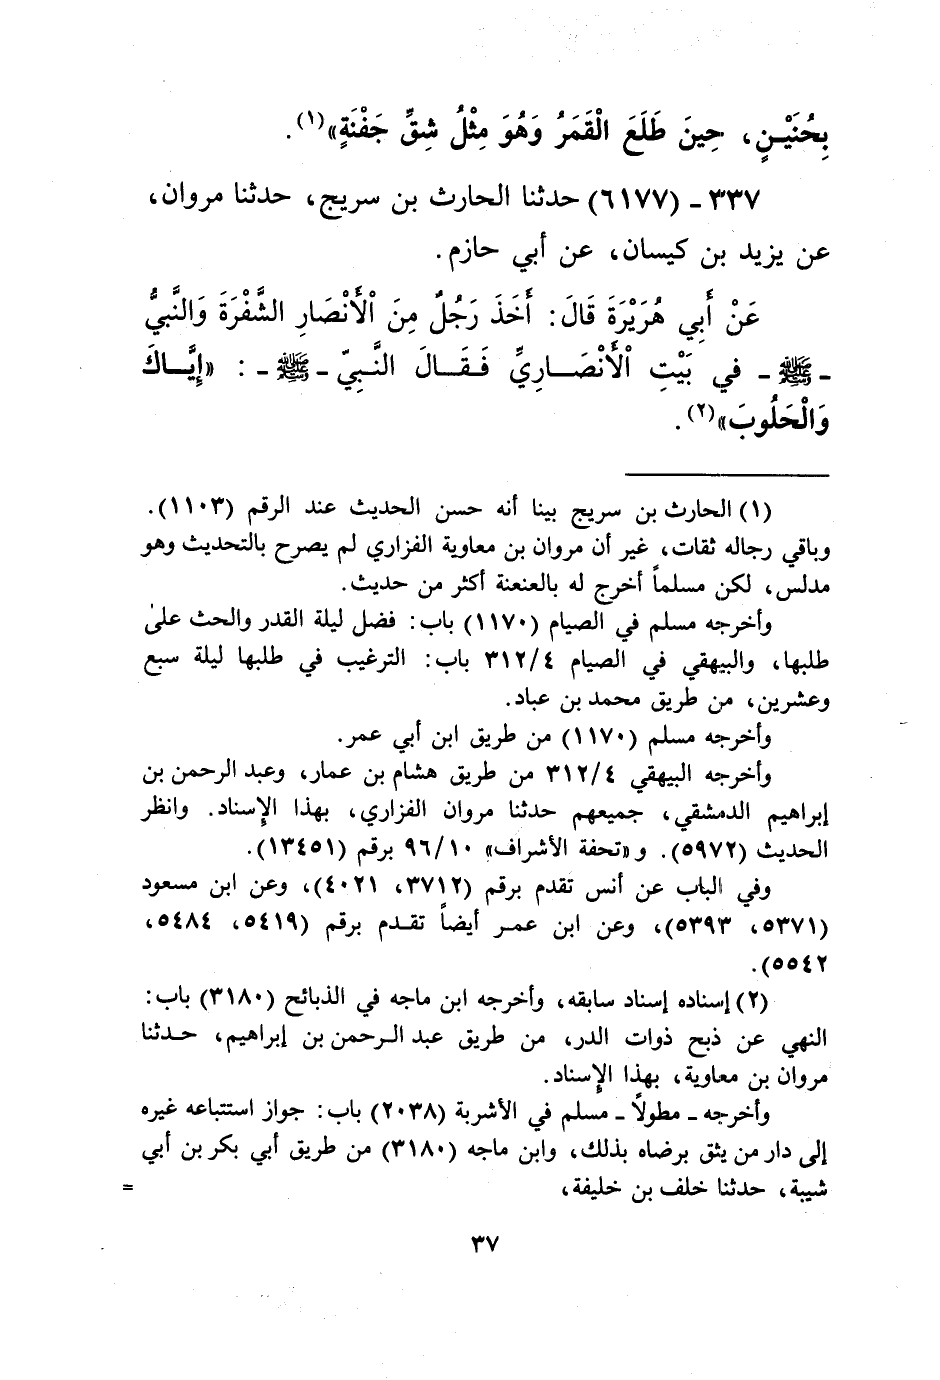 بِحُنَيْـنٍ، حِينَ طَلَعَ الْقَمَرُ وَهُوَ مِثْلُ شِقِّ جَفْنَةٍ»(١).
٣٣٧ - (٦١٧٧) حدثنا الحارث بن سريج، حدثنا مروان،
عن يزيد بن كيسان، عن أبي حازم.
عَنْ أَبِي هُرَيْرَةَ قَالَ: أَخَذَ رَجُلٌ مِنَ الْأَنْصَارِ الشَّفْرَةَ وَالنَّبِيُّ
- ﷺ - في بَيْتِ الْأَنْصَـارِيِّ فَـقَـالَ النَّـبِيّ - ﷺ - : «إِيَّـاكَ
وَالْحَلُوبَ»(٢).
(١) الحارث بن سريج بينا أنه حسن الحديث عند الرقم (١١٠٣).
وباقي رجاله ثقات، غير أن مروان بن معاوية الفزاري لم يصرح بالتحديث وهو
مدلس، لكن مسلماً أخرج له بالعنعنة أكثر من حديث.
وأخرجه مسلم في الصيام (١١٧٠) باب: فضل ليلة القدر والحث علىٰ
طلبها، والبيهقي في الصيام ٣١٢/٤ باب: الترغيب في طلبها ليلة سبع
وعشرين، من طريق محمد بن عباد.
وأخرجه مسلم (١١٧٠) من طريق ابن أبي عمر.
وأخرجه البيهقي ٣١٢/٤ من طريق هشام بن عمار، وعبد الرحمن بن
إبراهيم الدمشقي، جميعهم حدثنا مروان الفزاري، بهذا الإسناد. وانظر
الحديث (٥٩٧٢). و«تحفة الأشراف» ٩٦/١٠ برقم (١٣٤٥١).
وفي الباب عن أنس تقدم برقم (٣٧١٢، ٤٠٢١)، وعن ابن مسعود
(٥٣٧١، ٥٣٩٣)، وعن ابن عمـر أيضاً تقـدم برقم (٥٤١٩، ٥٤٨٤،
٥٥٤٢).
(٢) إسناده إسناد سابقه، وأخرجه ابن ماجه في الذبائح (٣١٨٠) باب:
النهي عن ذبح ذوات الدر، من طريق عبد الـرحمن بن إبراهيم، حـدثنا
مروان بن معاوية، بهذا الإسناد.
وأخرجه - مطولاً - مسلم في الأشربة (٢٠٣٨) باب: جواز استتباعه غيره
إلى دار من يثق برضاه بذلك، وابن ماجه (٣١٨٠) من طريق أبي بكر بن أبي
شيبة، حدثنا خلف بن خليفة، =
٣٧